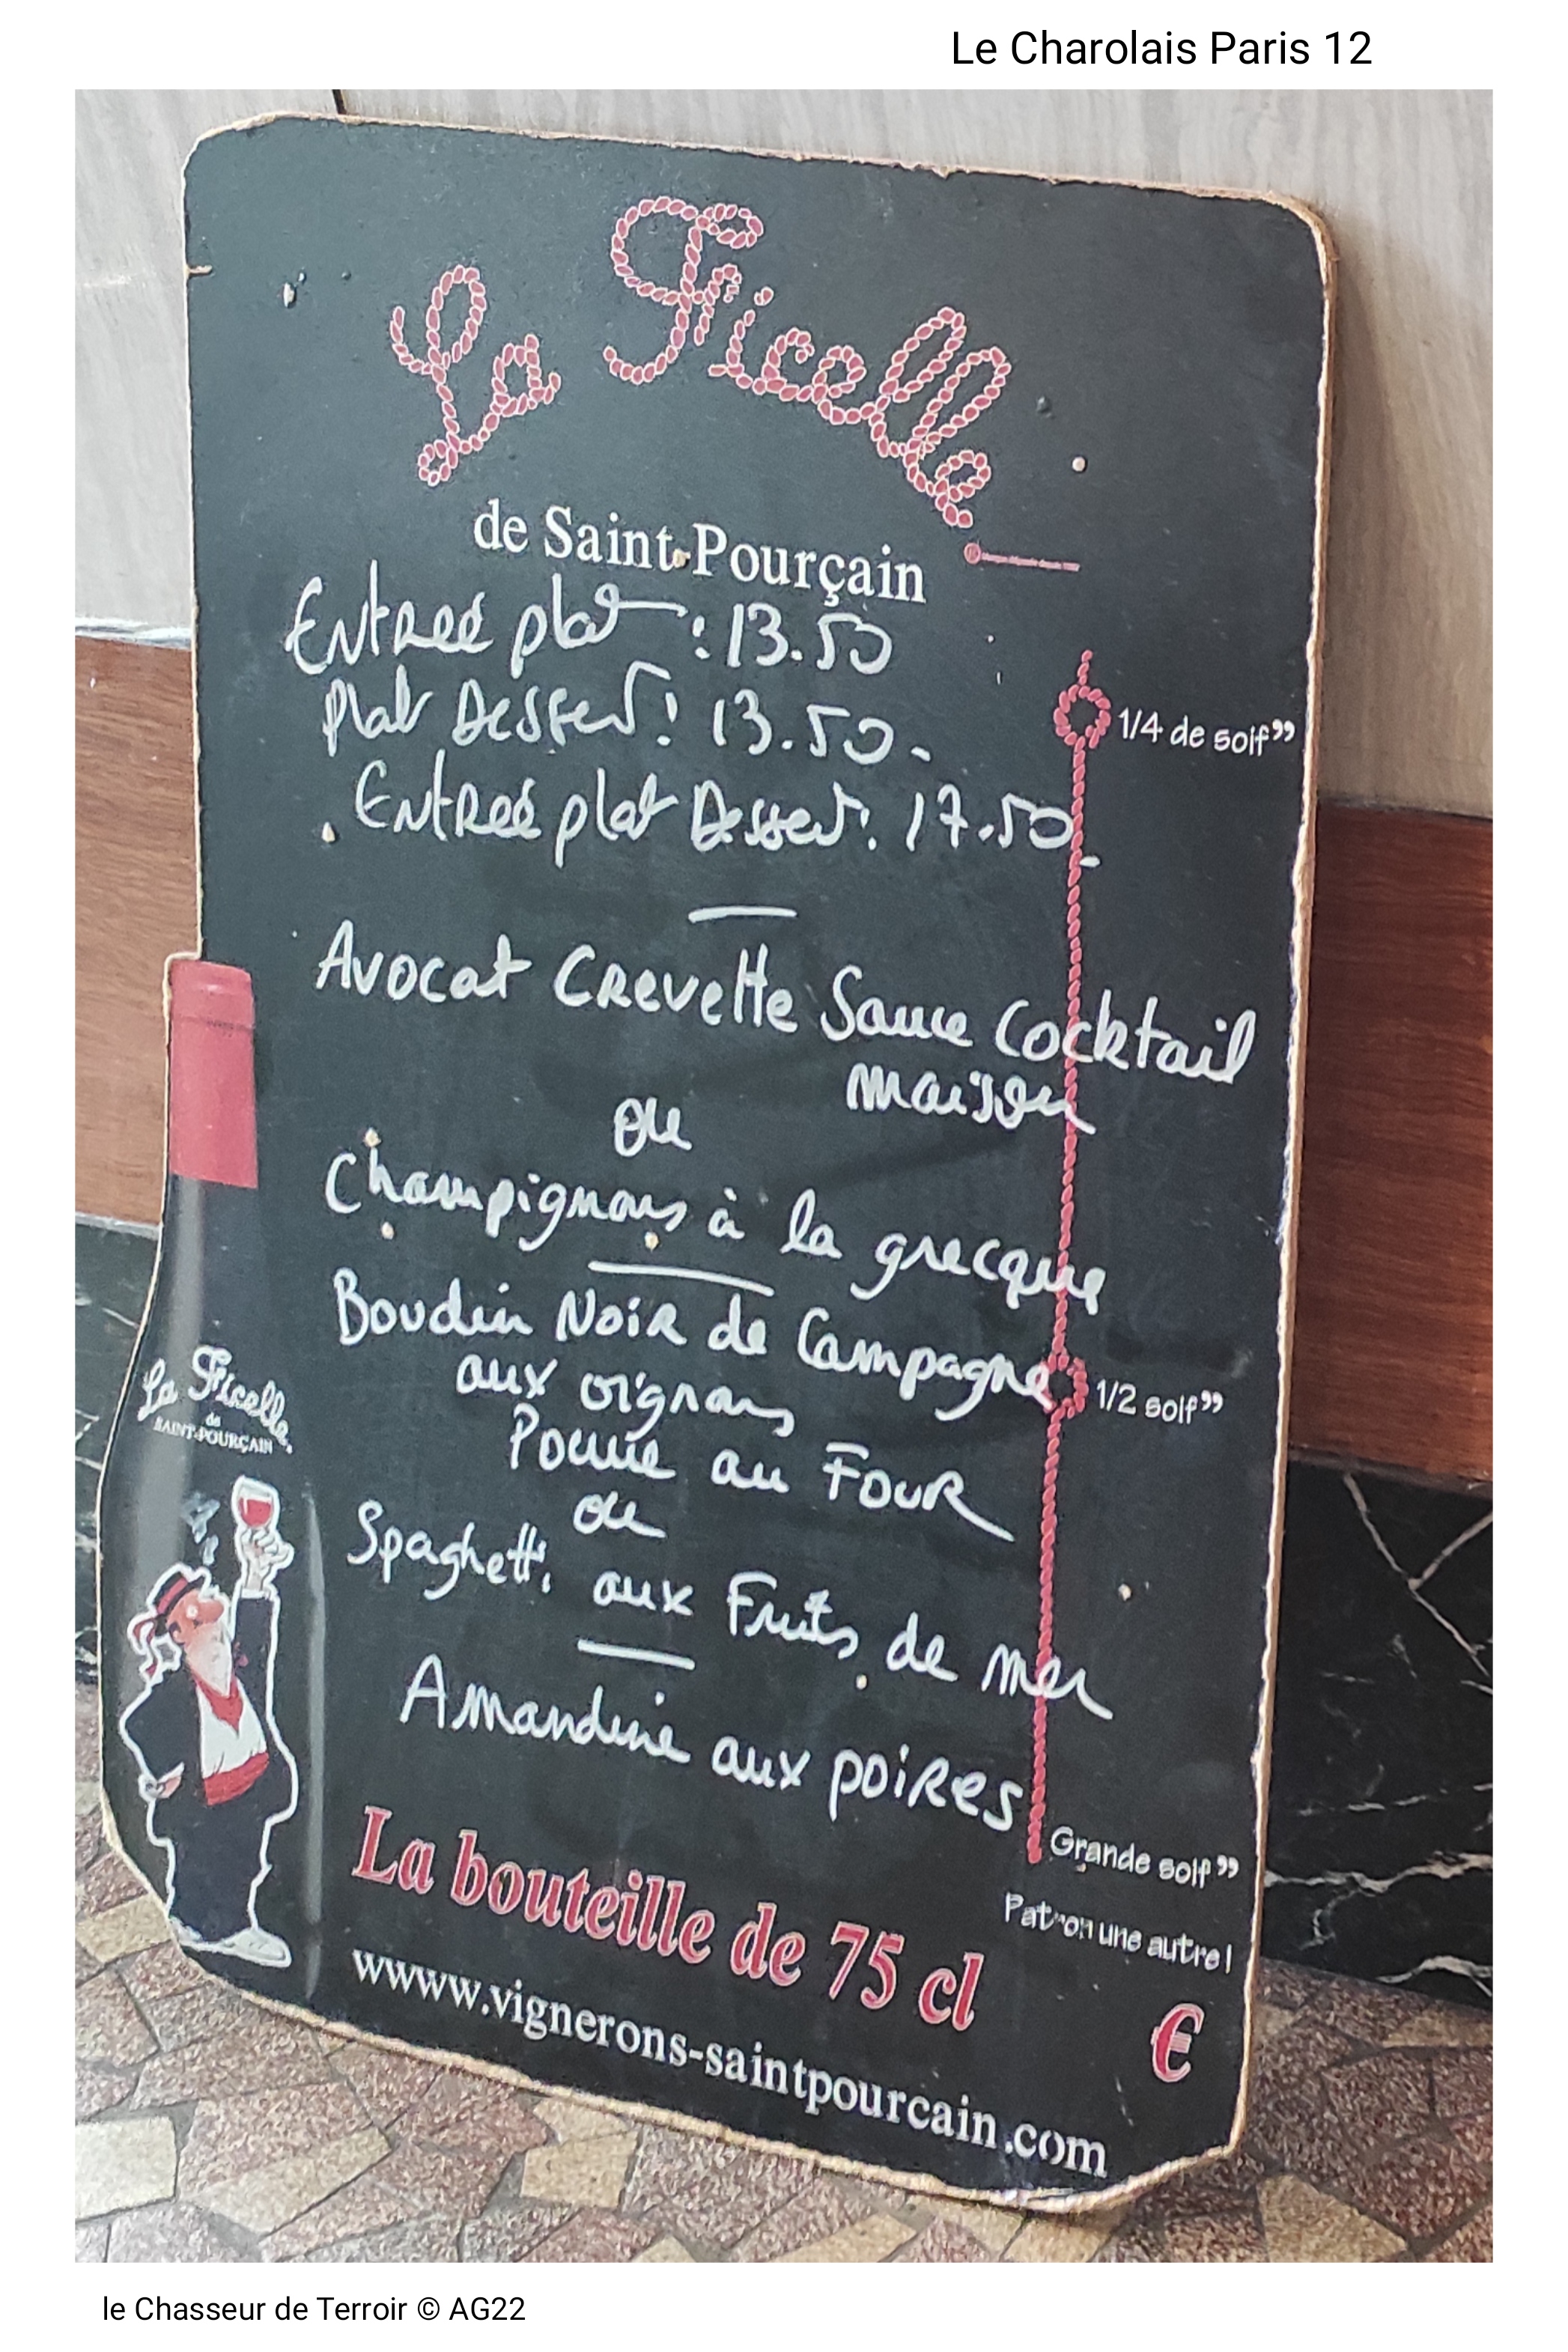 Le Charolais Paris 12
La Ficelle
de Saint-Pourçain
Entreé plat : 13.50
plat Dessert : 13.50-
1/4 de soif"
Entreé plat Dessert : 17.50-
Avocat Crevette Sauce Cocktail
maison
ou
Champignons à la grecque
Boudin Noir de Campagne
1/2 soif"
aux oignons
Pomme au Four
ou
Spaghetti aux Fruits de mer
Amandine aux poires
La Ficelle
de
SAINT-POURÇAIN
Grande soif"
Patron une autre!
La bouteille de 75 cl
€
wwww.vignerons-saintpourcain.com
le Chasseur de Terroir © AG22